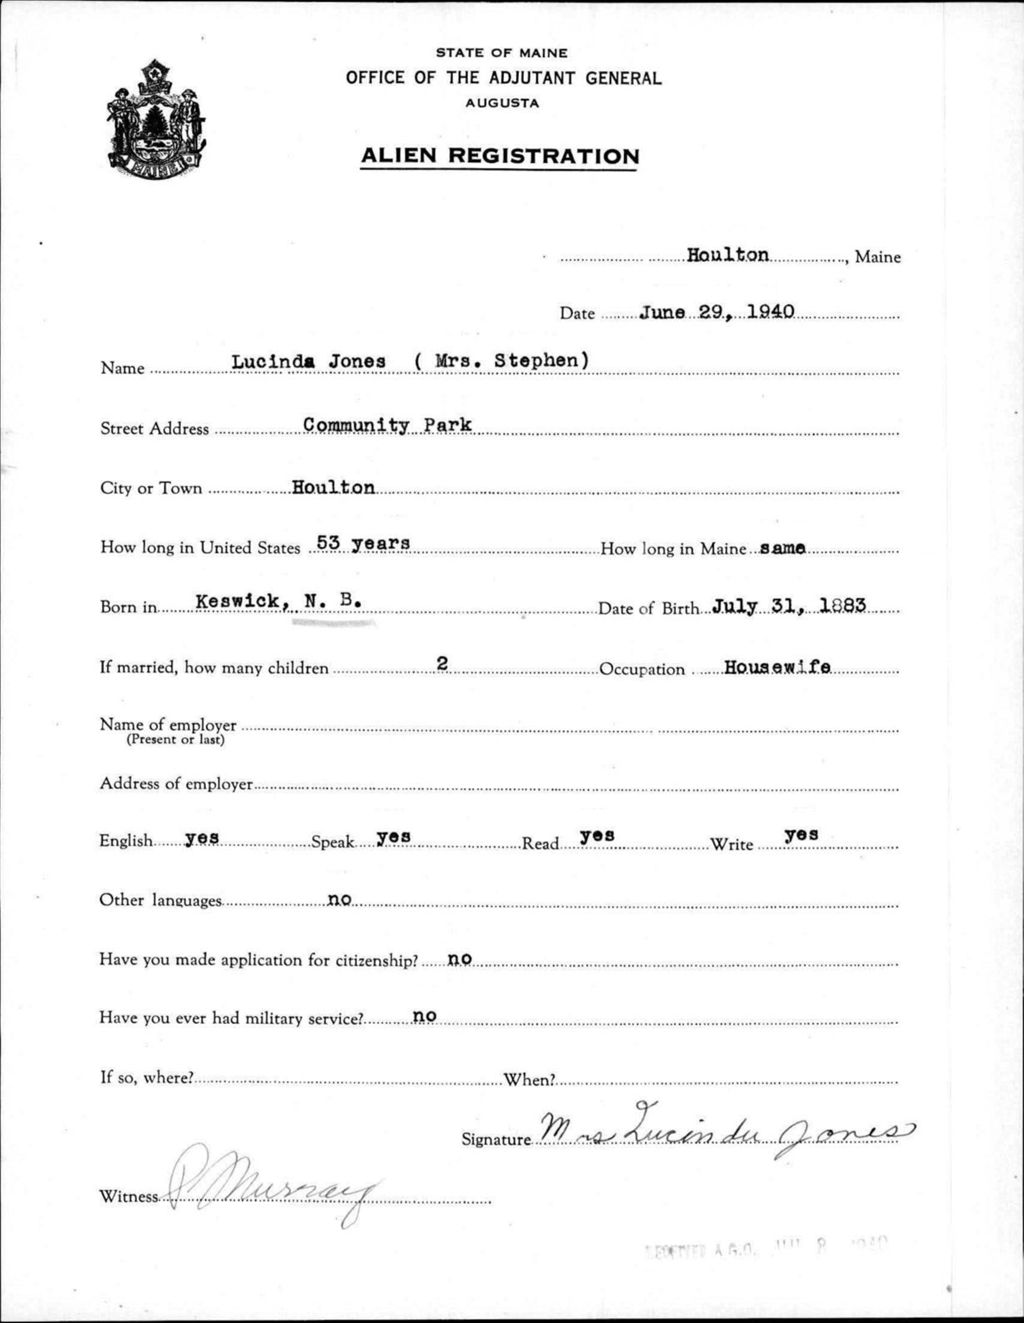 STATE OF MAINE
OFFICE OF THE ADJUTANT GENERAL
AUGUSTA
ALIEN REGISTRATION
MAINE
Houlton, Maine
Date June 29, 1940
Name Lucinda Jones ( Mrs. Stephen)
Street Address Community Park
City or Town Houlton
How long in United States 53 years How long in Maine same
Born in Keswick, N. B. Date of Birth July 31, 1883
If married, how many children 2 Occupation Housewife
Name of employer
(Present or last)
Address of employer
English yes Speak yes Read yes Write yes
Other languages no
Have you made application for citizenship? no
Have you ever had military service? no
If so, where? When?
Signature Mrs Lucinda Jones
Witness P Murray
RECEIVED A.G.O. 8 1940